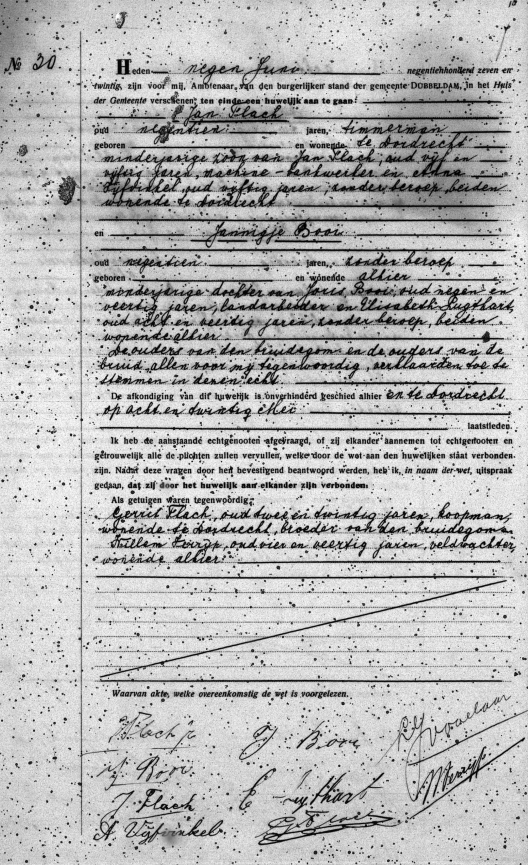 No 30.
Heden negen Juni negentienhonderd zeven en
twintig, zijn voor mij, Ambtenaar van den burgerlijken stand der gemeente DUBBELDAM, in het Huis
der Gemeente verschenen ten einde een huwelijk aan te gaan:
Jan Flach
oud negentien jaren, timmerman
geboren en wonende te Dordrecht
minderjarige zoon van Jan Flach, oud vijf en
vijftig jaren, machine-bankwerker en
Vijfwinkel oud vijftig jaren, zonder beroep, beiden
wonende te Dordrecht
en Jannigje Booi
oud negentien jaren, zonder beroep
geboren en wonende alhier
minderjarige dochter van Joris Booi, oud negen en
veertig jaren, landarbeider en Elisabeth Lugthart,
oud acht en veertig jaren, zonder beroep, beiden
wonende alhier
De ouders van den bruidegom en de ouders van de
bruid, allen voor mij tegenwoordig, verklaarden toe te
stemmen in dezen echt
De afkondiging van dit huwelijk is onverhinderd geschied alhier en te Dordrecht
op acht en twintig Mei
laatstleden.
Ik heb de aanstaande echtgenooten afgevraagd, of zij elkander aannemen tot echtgenooten en
getrouwelijk alle de plichten zullen vervullen, welke door de wet aan den huwelijken staat verbonden
zijn. Nadat deze vragen door hen bevestigend beantwoord werden, heb ik, in naam der wet, uitspraak
gedaan, dat zij door het huwelijk aan elkander zijn verbonden.
Als getuigen waren tegenwoordig:
Gerrit Flach, oud twee en twintig jaren, koopman,
wonende te Dordrecht, broeder van den bruidegom
Willem oud vier en veertig jaren, veldwachter,
wonende alhier
Waarvan akte, welke overeenkomstig de wet is voorgelezen.
J. Flach jr
J. Booi
J. Booi
J. Flach
E Lugthart
A. Vijfwinkel